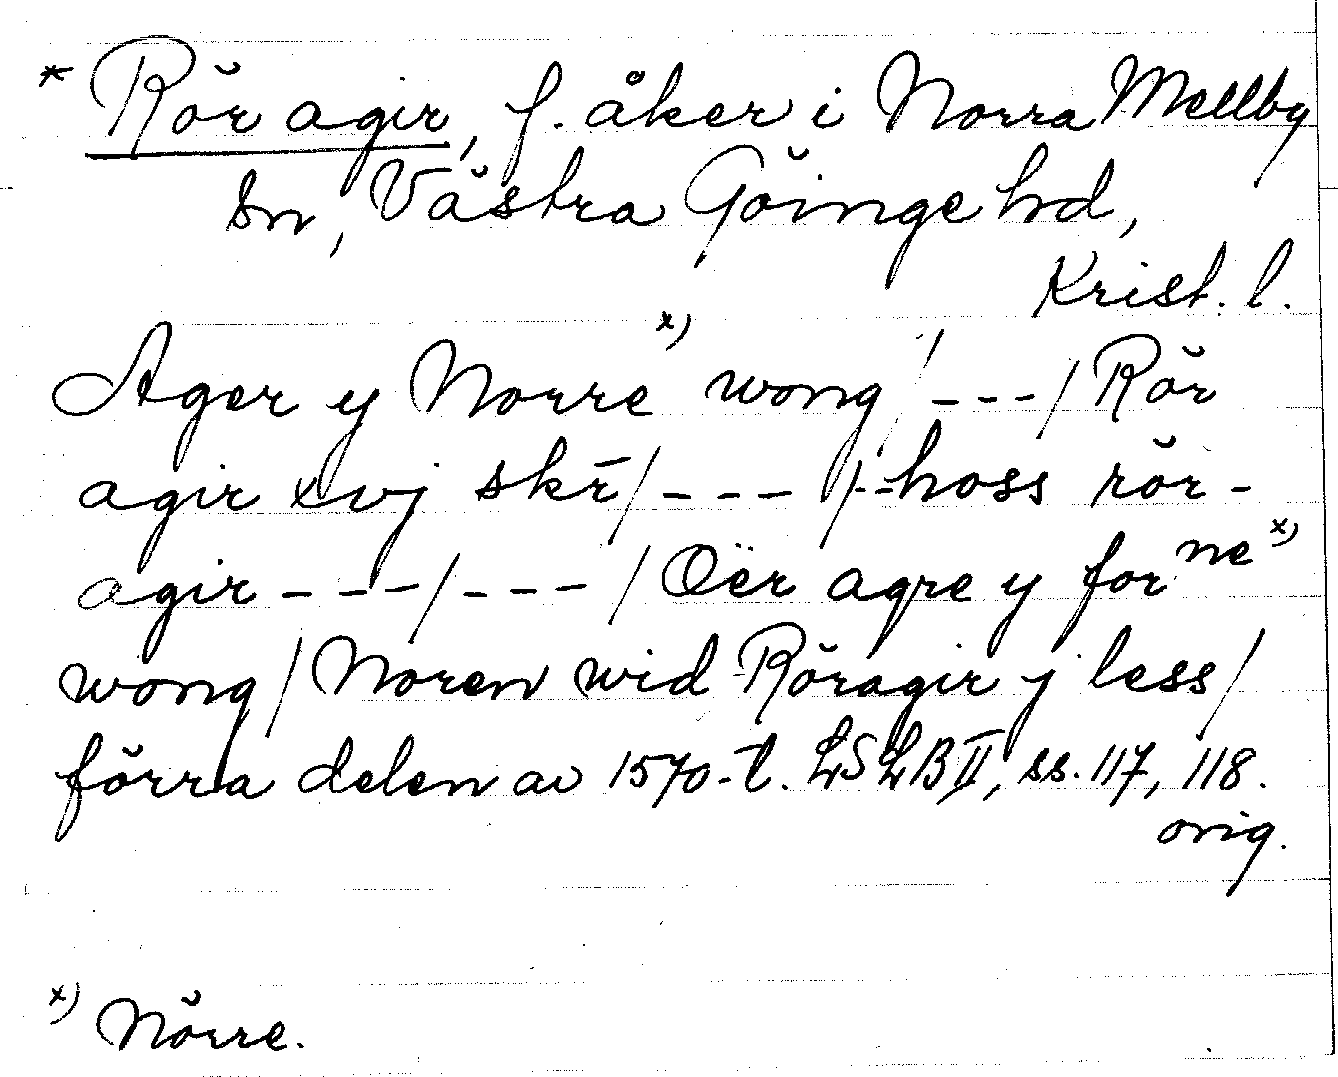 * Rör agir, f. åker i Norra Mellby
sn, Västra Göinge hd,
Krist. l.
Ager y Norre x) wong / --- / Rör
agir xvj skr̄ / --- / --hoss rör-
agir --- / --- / Oër agre y for ne x)
wong / Noren wid Röragir y less /
förra delen av 1570-t. LSLB II, ss. 117, 118.
orig.
x) Nörre.